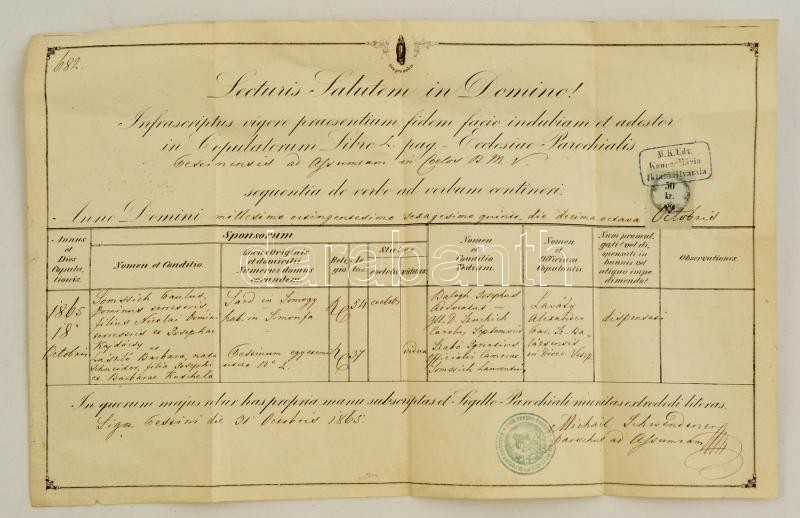 682.
Lecturis Salutem in Domino!
Infrascriptus vigore praesentium fidem facio indubiam et adestor
in Copulatorum Libro L. pag — Ecclesiae Parochialis
ad Assumtam in Coelos B. M. V.
sequentia de verbo ad verbum contineri.
M. K. Udv.
50
kr.
Anno Domini millesimo octingentesimo sexagesimo quinto, die decima octava Octobris
Annus et Dies Copulationis.
Sponsorum
Nomen et Conditio.
Locus Originis et domicilii Numerus domus eorundem
Religio
Aetas
Status
coelebs
viduus
Nomen Conditio Testium.
Nomen et Officium Copulantis.
Num promulgati vel dispensati in bannis vel aliquo impedimento?
Observationes.
1865
18a
Octobris
Somssich Paulus,
Dominus terrestris,
filius Nicolai Domini
terrestris et Josephae
et
László Barbara, nata
Schneider, filia Josephi
et Barbarae
Sárd in Somogy
hab. in Simonfa
R. C.
54
coelebs
R. C.
37
vidua
Balogh Josephus
Advocatus
Szabó Ignatius
Officialis Camerae
Alexander
dispensati
In quorum majus robur has propria manu subscriptas et Sigillo Parochiali munitas extradedi literas.
Sign. Tessini die 31 Octobris 1865.
Michaël Schwendtner
parochus ad Assumtam
darabanth